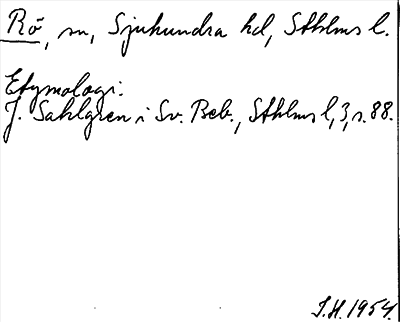 Rö, sn, Sjuhundra hd, Sthlms l.
Etymologi:
J. Sahlgren i Sv. Beb., Sthlms l, 3, s. 88.
I.H. 1954.